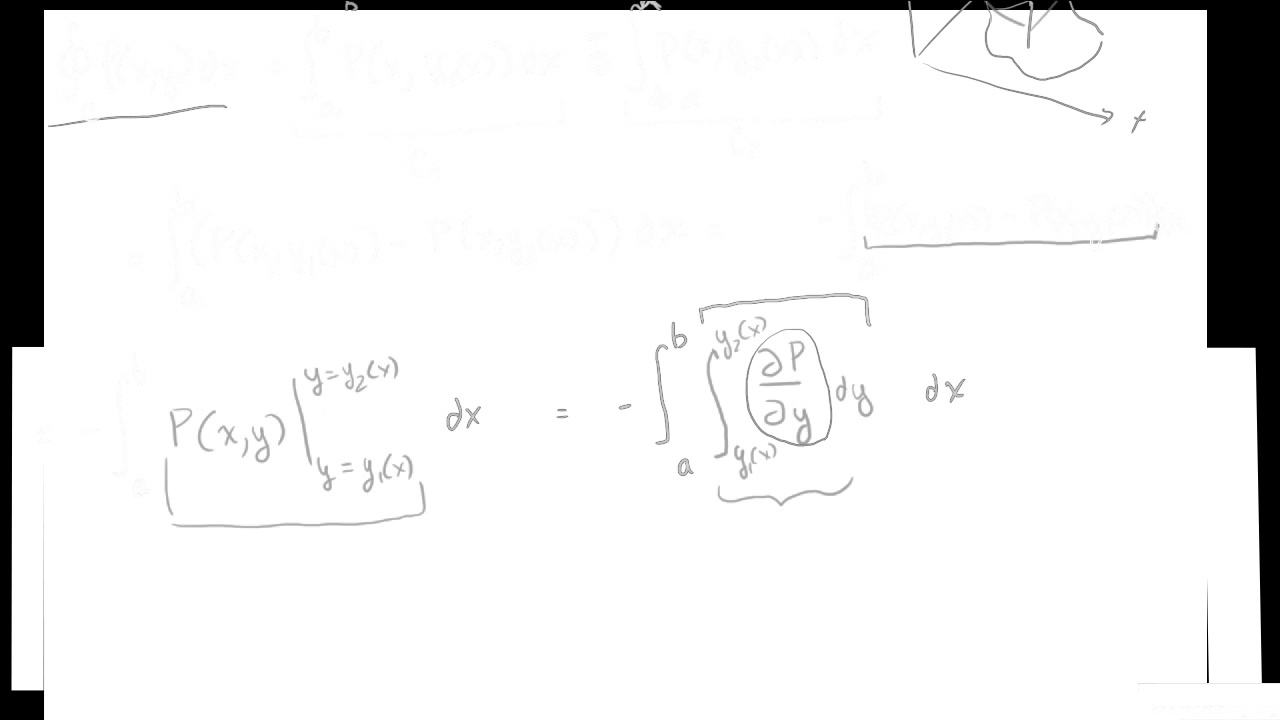 x
∮ P(x,y) dx = ∫_a^b P(x, y₁(x)) dx + ∫ P(x, y₂(x)) dx
C₁ C₂
= ∫_a^b (P(x, y₁(x)) - P(x, y₂(x))) dx =
= - ∫_a^b P(x,y) |_{y = y₁(x)}^{y=y₂(x)} dx = - ∫_a^b ∫_{y₁(x)}^{y₂(x)} ∂P/∂y dy dx